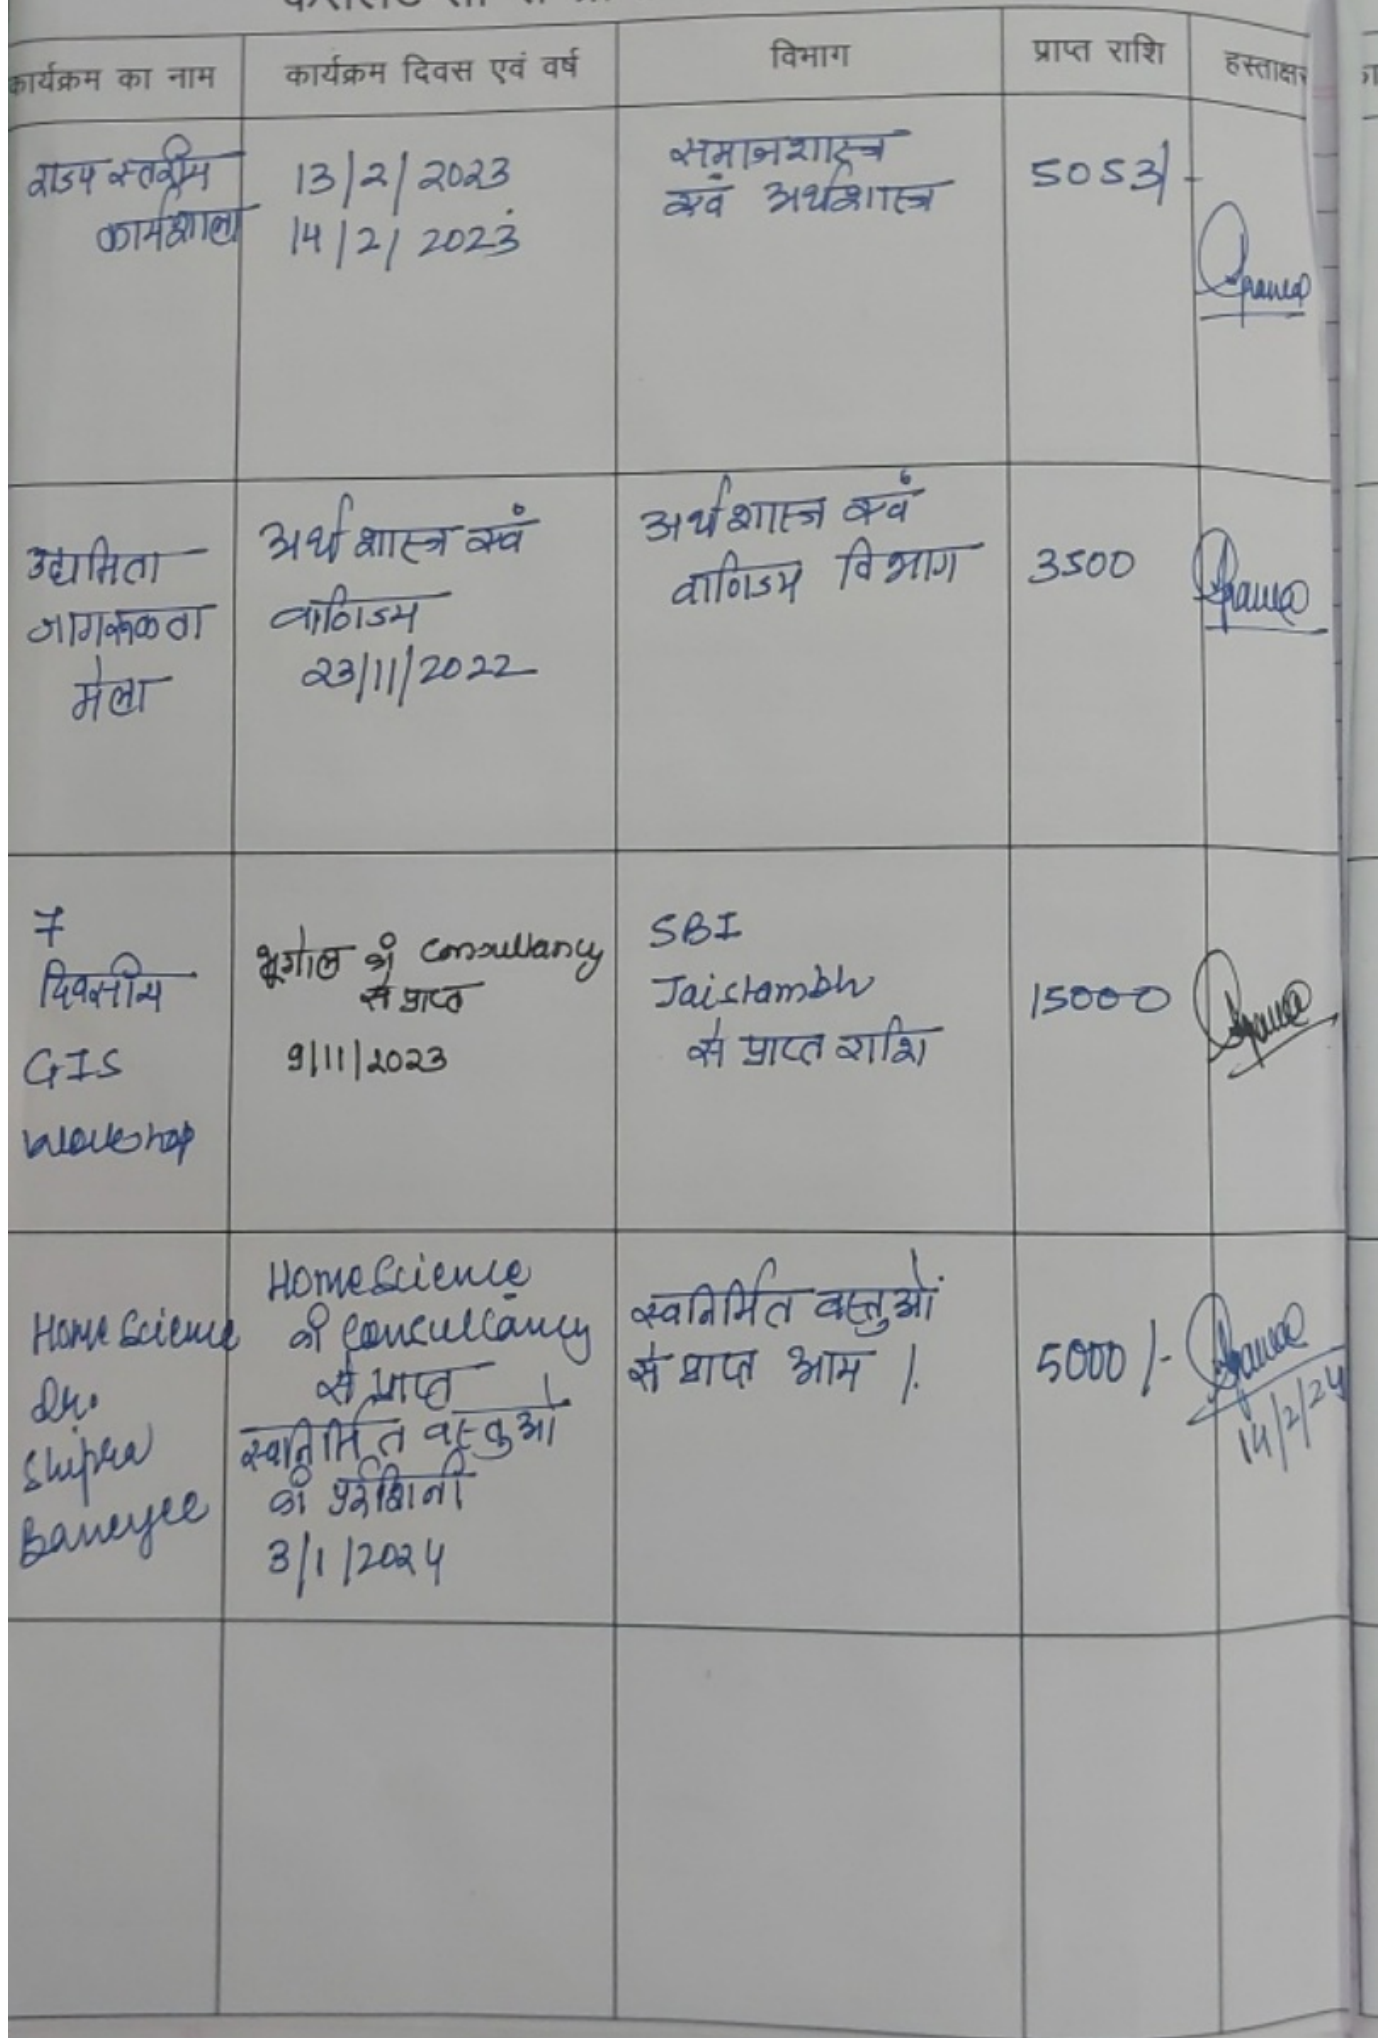 कार्यक्रम का नाम
कार्यक्रम दिवस एवं वर्ष
विभाग
प्राप्त राशि
हस्ताक्षर
राज्य स्तरीय
कार्यशाला
13/2/2023
14/2/2023
समाजशास्त्र
एवं अर्थशास्त्र
5053/-
उद्यमिता
जागरूकता
मेला
अर्थशास्त्र एवं
वाणिज्य
23/11/2022
अर्थशास्त्र एवं
वाणिज्य विभाग
3500
7
दिवसीय
GIS
Workshop
भूगोल की Consultancy
से प्राप्त
9/11/2023
SBI
Jaistambh
से प्राप्त राशि
15000
Home Science
Dr.
Shipra
Banerjee
Home Science
की Consultancy
से प्राप्त
स्वनिर्मित वस्तुओं
की प्रर्दशिनी
3/1/2024
स्वनिर्मित वस्तुओं
से प्राप्त आय ।.
5000/-
14/2/24